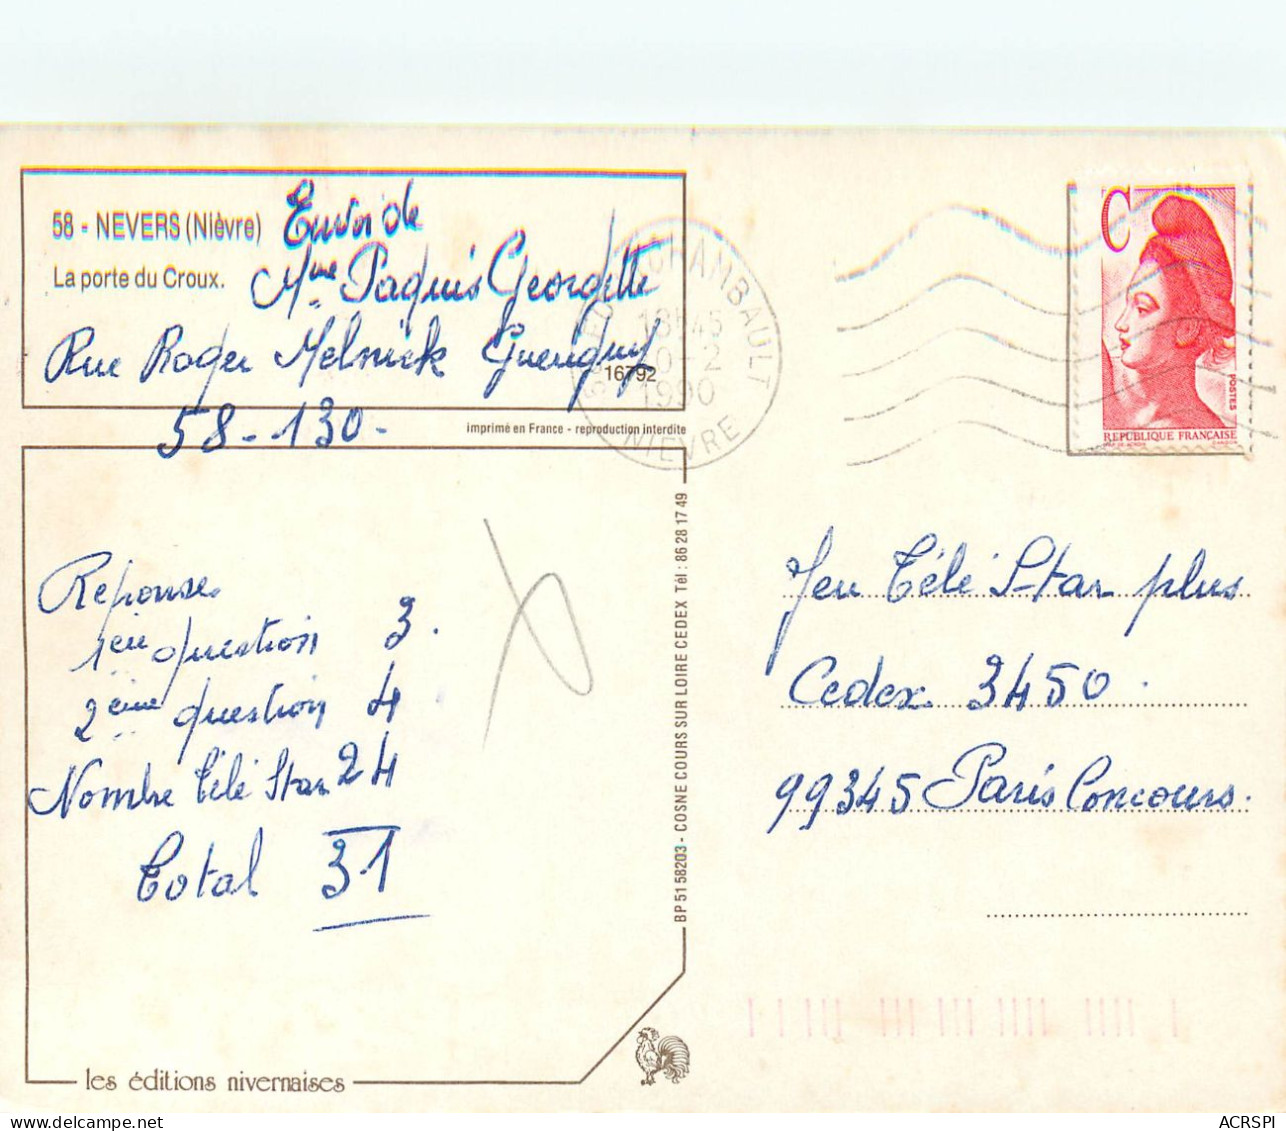 58 - NEVERS (Nièvre)
La porte du Croux.
Envoi de
Mme Paquis Georgette
Rue Roger Melnick Guerigny
16792
58-130-
imprimé en France - reproduction interdite
CHAMBAULT
18H45
-2
1990
NIEVRE
C
POSTES
REPUBLIQUE FRANÇAISE
Reponses
1ère question 3.
2ème question 4
Nombre Télé Star 24
Total 31
BP 51 58203 - COSNE COURS SUR LOIRE CEDEX Tél : 86 28 17 49
Jeu Télé Star plus
Cedex 3450.
99345 Paris Concours.
les éditions nivernaises
ACRSPI